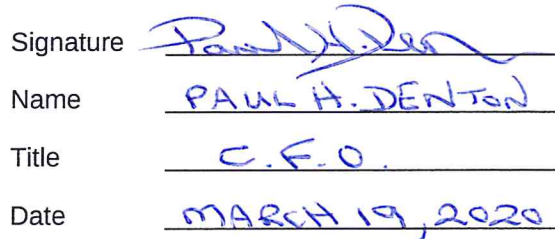 Signature Paul H. Den
Name PAUL H. DENTON
Title C.F.O.
Date MARCH 19, 2020